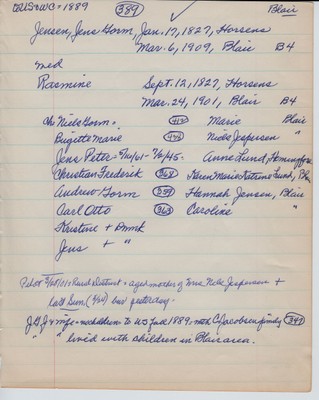 to US w C = 1889 389 Blair
Jensen, Jens Gorm, Jan. 17, 1827, Horsens
Mar. 6, 1909, Blair B4
med
Rasmine Sept. 12, 1827, Horsens
Mar. 24, 1901, Blair B4
Ch: Niels Gorm = Marie Blair
Birgitte Marie Niels Jespersen "
Jens Peter = Anne Lund,
Christian Frederik 368 Karen Marie Katrine Lund, Blair
Andrew Gorm 359 Hannah Jensen, Blair
Carl Otto 363 Caroline "
Kristine + Dnmk
Jens + "
Rural District = aged mother of Mrs. Niels Jespersen +
Carl Gorm bur yesterday.
J G J & wife = no children to US fall 1889, with C Jacobsen family 347
" " lived with children in Blair area.